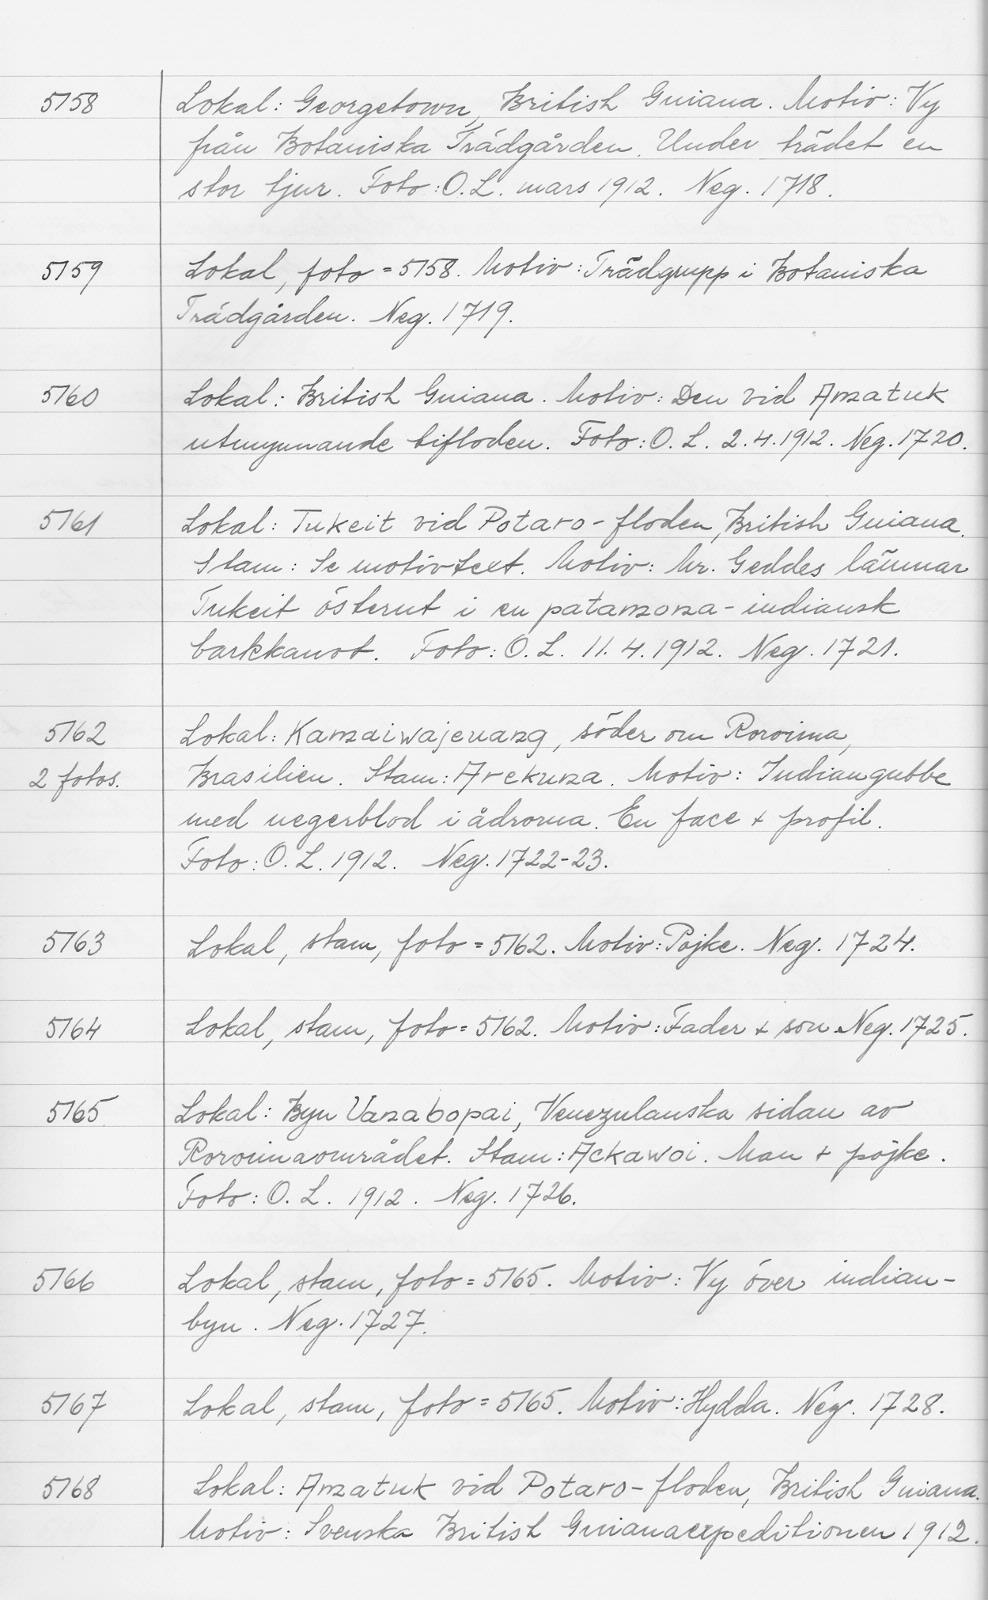 5158 Lokal: Georgetown, British Guiana. Motiv: Vy
från Botaniska Trädgården. Under trädet en
stor tjur. Foto: O.L. mars 1912. Neg. 1718.
5159 Lokal, foto = 5158. Motiv: Trädgrupp i Botaniska
Trädgården. Neg. 1719.
5160 Lokal: British Guiana. Motiv: Den vid Amatuk
utmynnande bifloden. Foto: O. L. 2.4.1912. Neg. 1720.
5161 Lokal: Tukeit vid Potaro-floden, British Guiana.
Stam: Se motivtext. Motiv: Mr. Geddes lämnar
Tukeit österut i en patamona-indiansk
barkkanot. Foto: O. L. 11. 4. 1912. Neg. 1721.
5162 Lokal: Kamaiwajenang, söder om Roroima,
2 fotos. Brasilien. Stam: Arekuna. Motiv: Indiangubbe
med negerblod i ådrorna. En face + profil.
Foto: O. L. 1912. Neg. 1722-23.
5163 Lokal, stam, foto = 5162. Motiv: Pojke. Neg. 1724.
5164 Lokal, stam, foto = 5162. Motiv: Fader + son. Neg. 1725.
5165 Lokal: Byn Vanabopai, Venezulanska sidan av
Roroimaområdet. Stam: Ackawoi. Man + pojke.
Foto: O. L. 1912. Neg. 1726.
5166 Lokal, stam, foto = 5165. Motiv: Vy över indian-
byn. Neg. 1727.
5167 Lokal, stam, foto = 5165. Motiv: Hydda. Neg. 1728.
5168 Lokal: Amatuk vid Potaro-floden, British Guiana.
Motiv: Svenska British Guianaexpeditionen 1912.